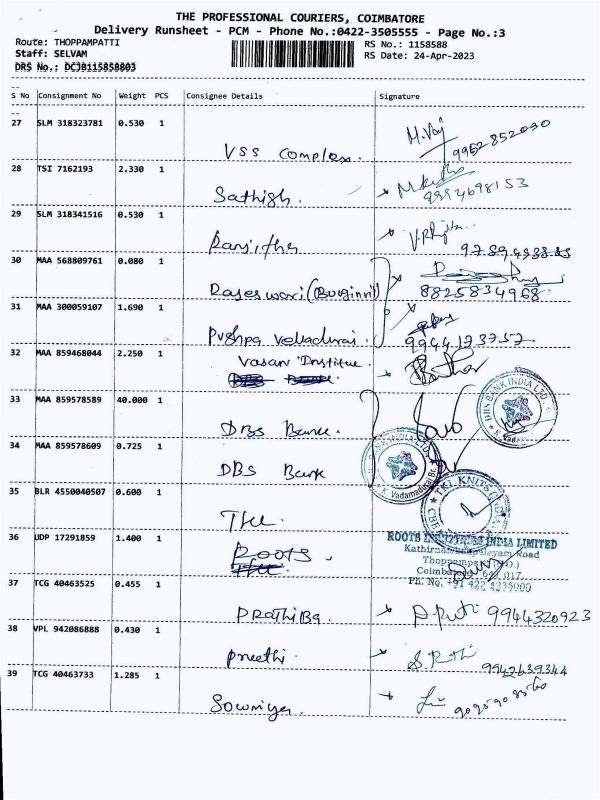 THE PROFESSIONAL COURIERS, COIMBATORE
Delivery Runsheet - PCM - Phone No.:0422-3505555 - Page No.:3
Route: THOPPAMPATTI
RS No.: 1158588
Staff: SELVAM
RS Date: 24-Apr-2023
DRS No.: DCJB115858803
S No Consignment No Weight PCS Consignee Details Signature
27 SLM 318323781 0.530 1
VSS Complex. M.Vij 9952852090
28 TSI 7162193 2.330 1
Sathish. 9994698153
29 SLM 318341516 0.530 1
Ranjitha
30 MAA 568809761 0.080 1
Rajeswari (Burginvil) 8825834968
31 MAA 300059107 1.690 1
Pushpa Velladurai. 9944173757
32 MAA 859468044 2.250 1
Vasan Institue.
33 MAA 859578589 40.000 1
DBS Bank. DBS BANK INDIA LTD.
34 MAA 859578609 0.725 1
DBS Bank K. Vadamadurai Br.
35 BLR 4550040507 0.600 1
TKL. TKL KNITS INDIA
36 UDP 17291859 1.400 1
ROOTS. ROOTS INDIA LIMITED
Road
Ph. No. +91 422 4235000
37 TCG 40463525 0.455 1
PRathiBa. 9944320923
38 VPL 942086888 0.430 1
Preethi. 9942639344
39 TCG 40463733 1.285 1
Sowmiya.